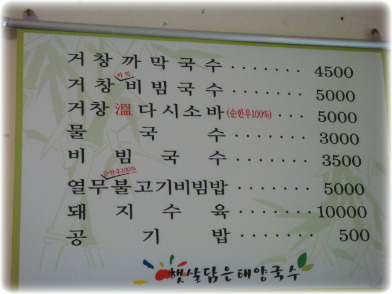 거창까막국수 ........ 4500
거창비빔국수 ........ 5000
거창 溫 다시소바(순한우100%) ... 5000
물국수 ........ 3000
비빔국수 ........ 3500
순한우100%
열무불고기비빔밥 ....... 5000
돼지수육 ....... 10000
공기밥 ....... 500
햇살닮은태양국수